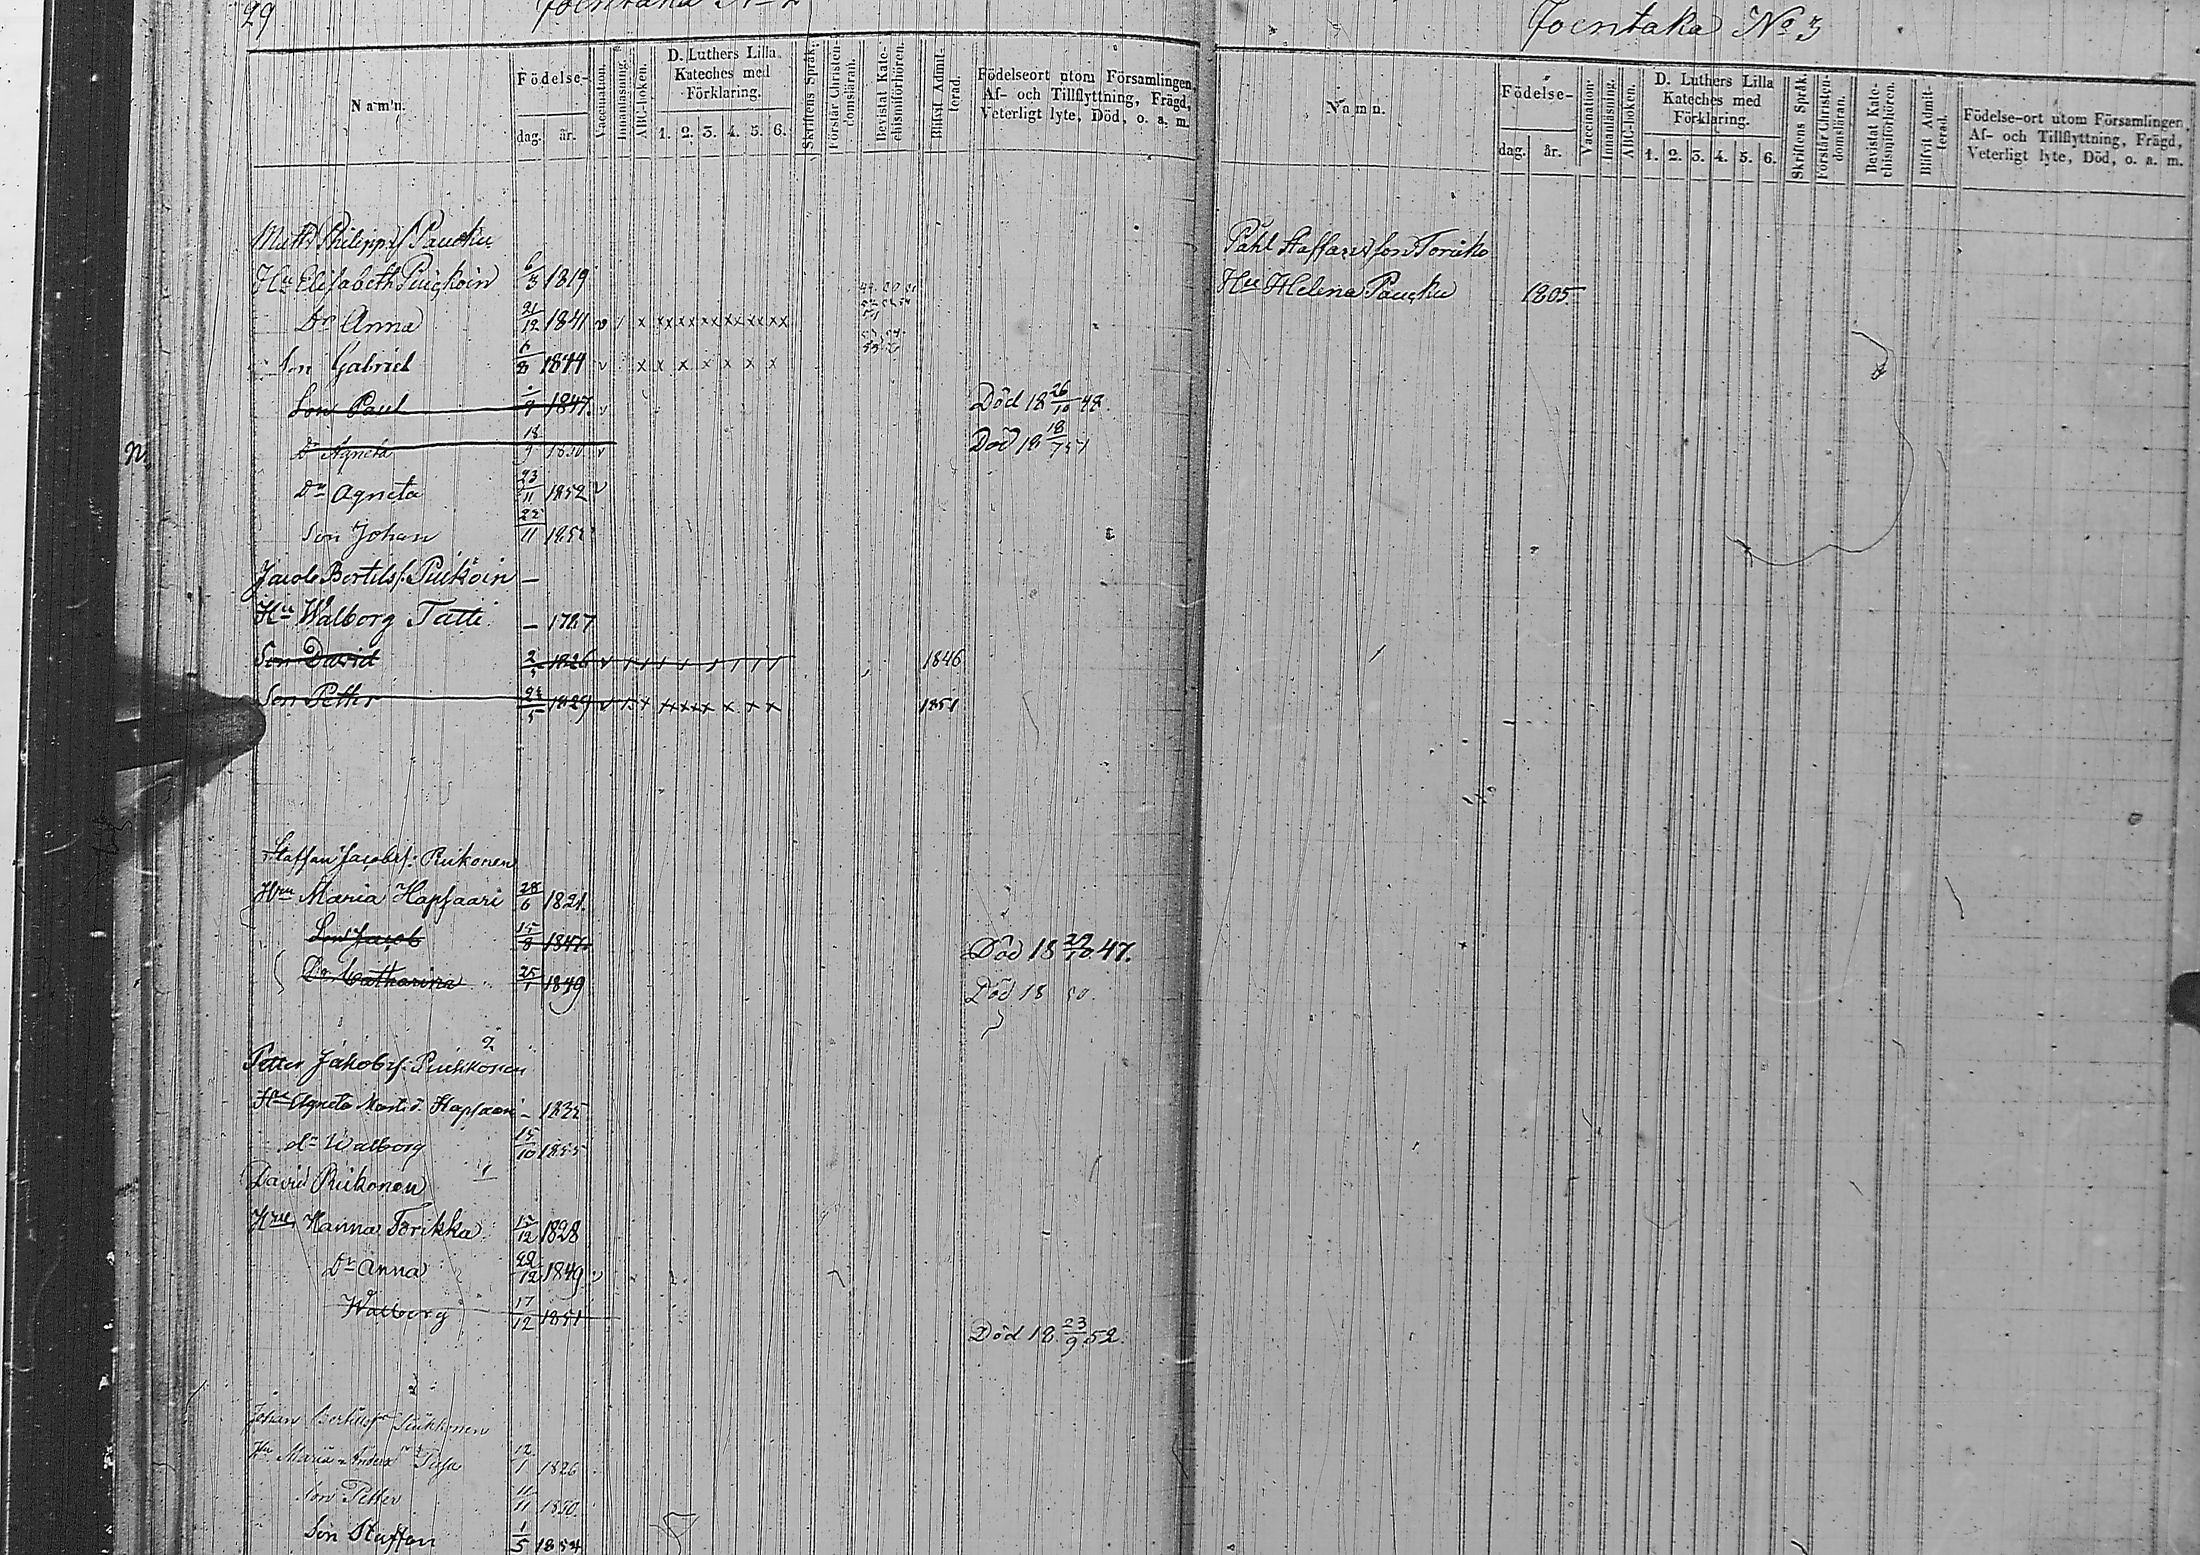 29
Joentaka No 2
Namn.
Födelse-
dag. år.
Vaccination.
Innanläsning.
ABC-boken.
D. Luthers Lilla
Kateches med
Förklaring.
1. 2. 3. 4. 5. 6.
Skriftens Språk.
Förstår Christen-
domsläran.
Bevistat Kate-
chismiförhören.
Blifvit Admit-
terad.
Födelseort utom Församlingen,
Af- och Tillflyttning, Frägd,
Veterligt lyte, Död, o. a. m.
Matts Philippsf Paucku
Hu Elisabeth 6/3 1819
Dr Anna 21/12 1841 v x x x x x x x x x x x
Son Gabriel 6/8 1844 v x x x x x x x
Son Paul /9 1847. v Död 18 26/10 48.
Dr Agneta 18/9 1850 v Död 18 18/7 51
Dr Agneta 23/11 1852 v
Son Johan 11 185
Jacob Bertilsf: –
Hu Walborg Tatti – 1787
Son David 2/ 1826 v 1846
Son Petter /5 1829 v x x x x x x x x x 1851
Staffan Jacobsf: Rickonen
Hru Maria Hapsaari 28/6 1821.
Son Jacob 15/8 1847. Död 18 29/10 47.
Dr Catharina 25/1 1849 Död 18 50.
2
Petter Jakobsf:
Hu Agneta Hapsaari – 1835
dr Walborg 15/10 1855
1
David Rickonen
Hru Hanna Torikka 15/12 1828
Dr Anna 22/12 1849 v
Walborg 17/12 1851 Död 18 23/9 52.
2
Johan
Hu Maria 12/1 1826
Son Petter /11 1850.
Son Staffan 1/5 1854
Joentaka No 3
Namn.
Födelse-
dag. år.
Vaccination.
Innanläsning.
ABC-boken.
D. Luthers Lilla
Kateches med
Förklaring.
1. 2. 3. 4. 5. 6.
Skriftens Språk.
Förstår Christen-
domsläran.
Bevistat Kate-
chismiförhören.
Blifvit Admit-
terad.
Födelse-ort utom Församlingen,
Af- och Tillflyttning, Frägd,
Veterligt lyte, Död, o. a. m.
Påhl Staffansson
Hu Helena Paucku 1805